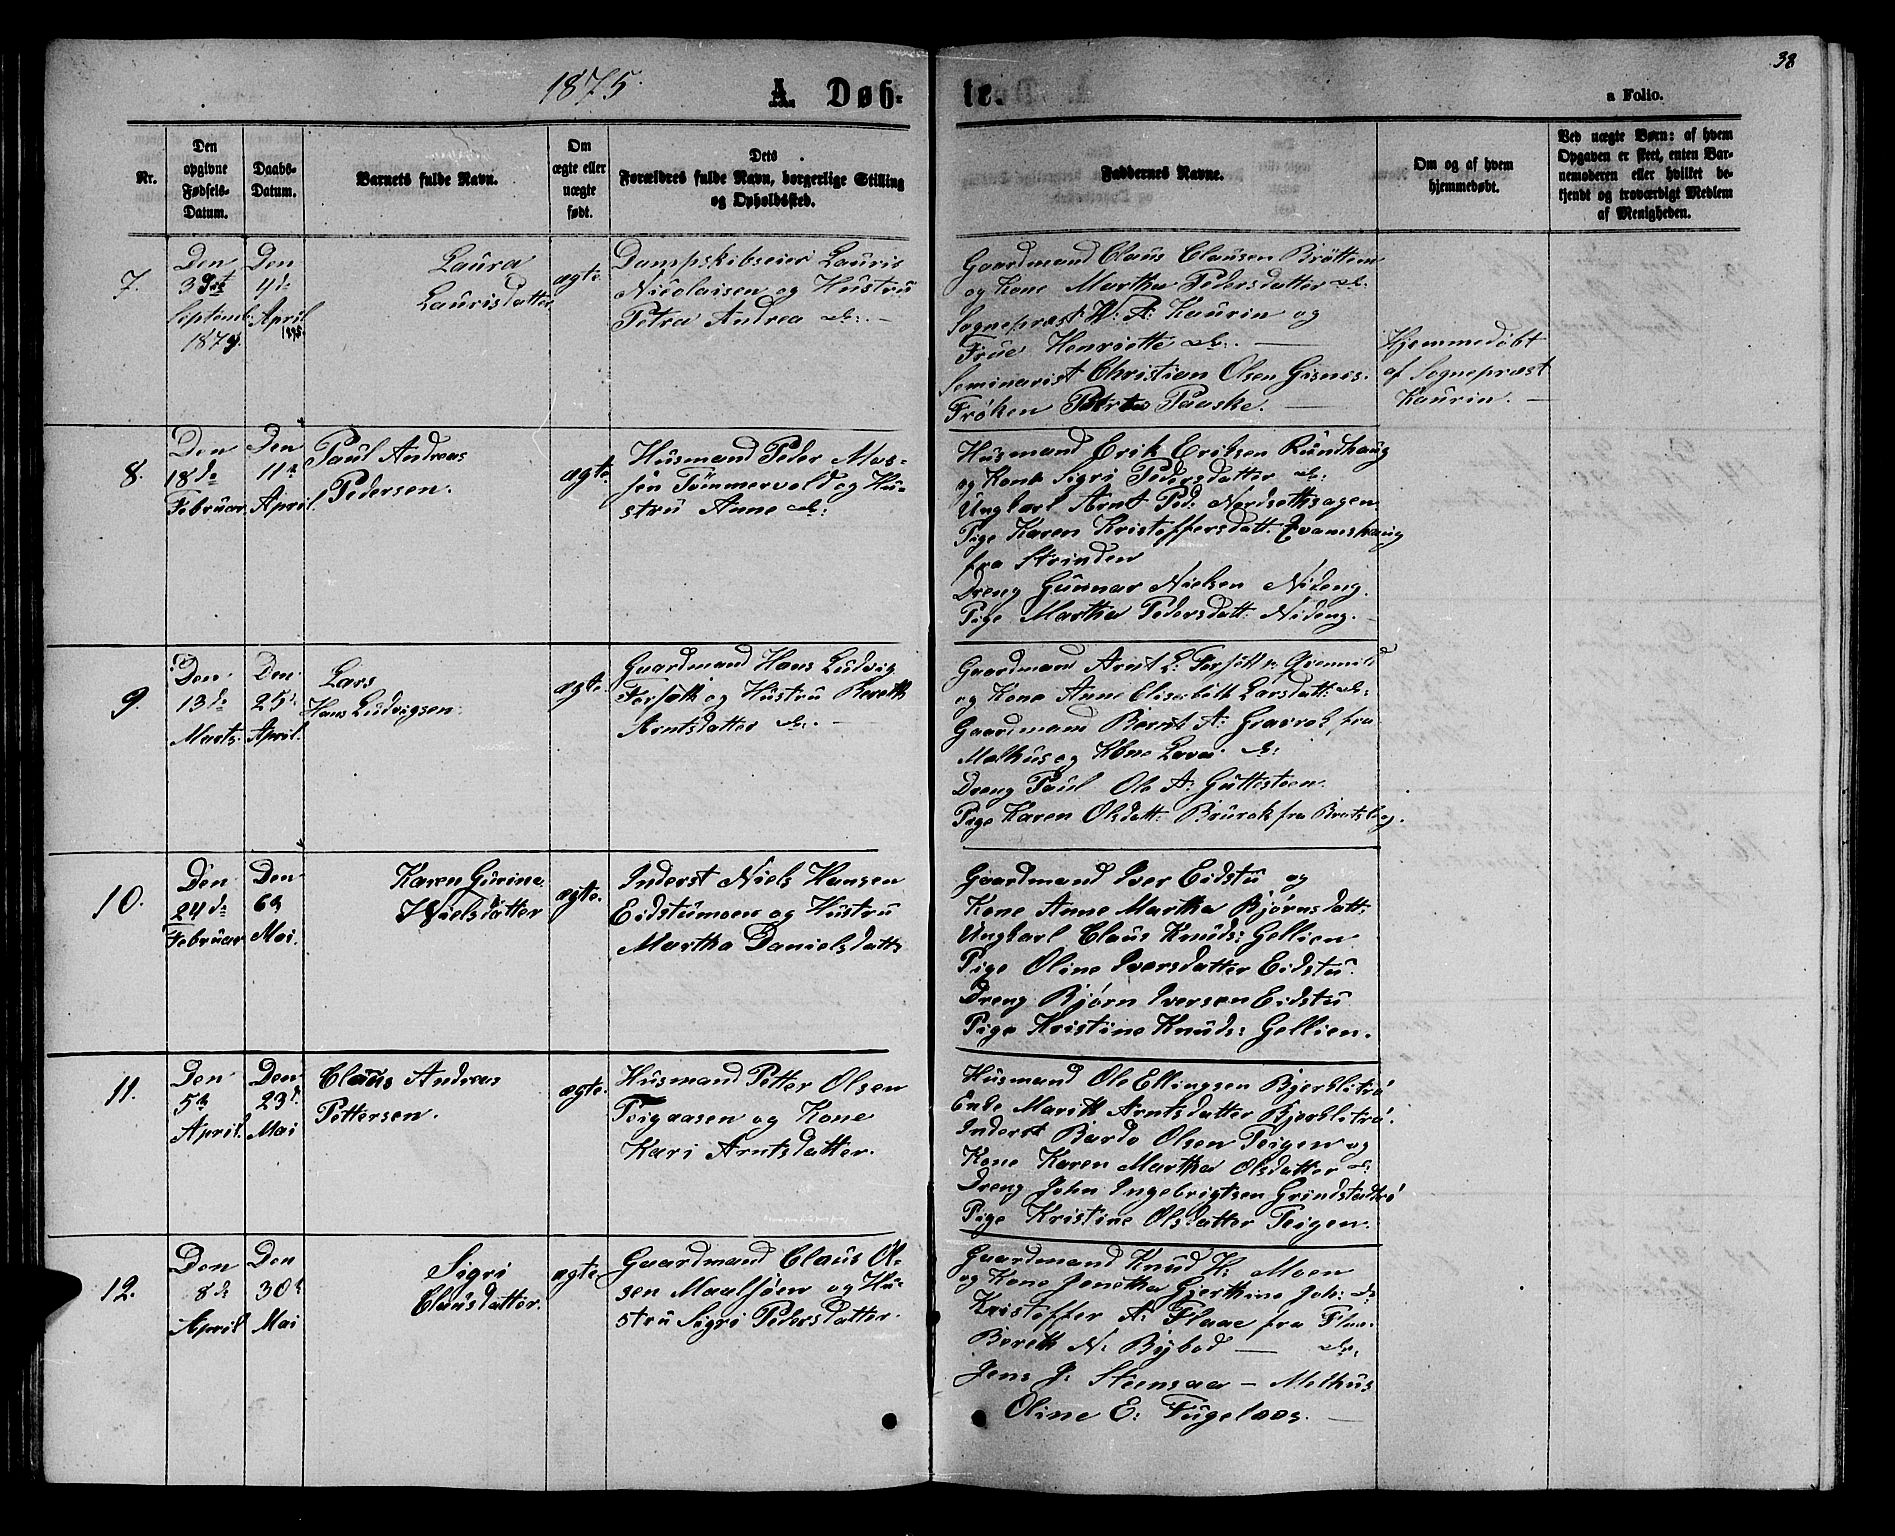 1875.
A. Døb-
te.
38
a Folio.
Nr.
Den opgivne Fødsels-Datum.
Daabs-Datum.
Barnets fulde Navn.
Om ægte eller uægte født.
Dets Forældres fulde Navn, borgerlige Stilling og Opholdssted.
Faddernes Navne.
Om og af hvem hjemmedøbt.
Ved uægte Børn: af hvem Opgaven er skeet, enten Barnemoderen eller hvilket bekjendt og troværdigt Medlem af Menigheden.
7.
Den
Septemb.
1874.
Den
4de
April
1875.
Laura
Laurisdatter
ægte.
Dampskibseier Lauris
Nicolaisen og Hustru
Petra Andrea do. —
Gaardmand Claus Clausen Brøttem
og Kone Martha Pedersdatter do.
Sognepræst H. A. Kaurin og
Frue Henriette do. —
Seminarist Christian Olsen Gisnis.
Frøken Paaske. —
Hjemmedøbt
af Sognepræst
Kaurin. —
8.
Den
18de
Februar.
Den
11te
April.
Paul Andreas
Pedersen.
ægte.
Husmand Peder Mos-
sen Tømmervold og Hu-
stru Anne do:
Husmand Erik Eriksen Rundhaug
og Kone Sigri Pedersdatter do:
Ungkarl Arnt Ped: Nordsethsagen.
Pige Karen Kristoffersdatt.
fra Strinden
Dreng Gunnar Nielsen Nideng.
Pige Martha Pedersdatt: Nideng. —
9.
Den
13de
Marts.
Den
25de
April.
Lars
Hans Ludvigsen.
ægte.
Gaardmand Hans Ludvig
Forseth og Hustru Bereth
Arntsdatter do. —
Gaardmand Arnt L: Forseth
og Kone Anne Elisabeth Larsdatt: do:
Gaardmand Bernt A: Gravrok fra
Melhus og Kone do:
Dreng Paul Ole A: Guttesteen.
Pige Karen Olsdatt: Brurok fra Bratsberg.
10.
Den
24de
Februar
Den
6te
Mai.
Karen Gurine
Nielsdatter
ægte.
Inderst Niels Hansen
Eidstumoen og Hustru
Martha Danielsdatt.
Gaardmand Iver Eidstu og
Kone Anne Martha Bjørnsdatt:
Ungkarl Claus Knuds: Gellien
Pige Oline Iversdatter Eidstu.
Dreng Bjørn Iversen Eidstu
Pige Kristine Knuds: Gellien.
11.
Den
5te
April.
Den
23de
Mai
Claus Andreas
Pettersen.
ægte.
Husmand Petter Olsen
Teigaasen og Kone
Kari Arntsdatter.
Husmand Ole Ellingsen Bjerklitrø
Enke Marit Arntsdatter Bjerklitrø.
Inderst Bardo Olsen Teigen og
Kone Karen Martha Olsdatter do:
Dreng John Ingebrigtsen Grindstadtrø
Pige Kristine Olsdatter Teigen.
12.
Den
8de
April
Den
30te
Mai
Sigri
Clausdatter.
ægte
Gaardmand Claus Ol-
sen Maalsjøen og Hu-
stru Sigri Pedersdatter.
Gaardmand Knud K: Moen
og Kone Jenetha Gjertine Joh: do:
Kristoffer A: Flaae fra Flaa.
Bereth N: Bybod — do:
Jens J: Steensaa — Melhus
Oline E: Fugelaas. —